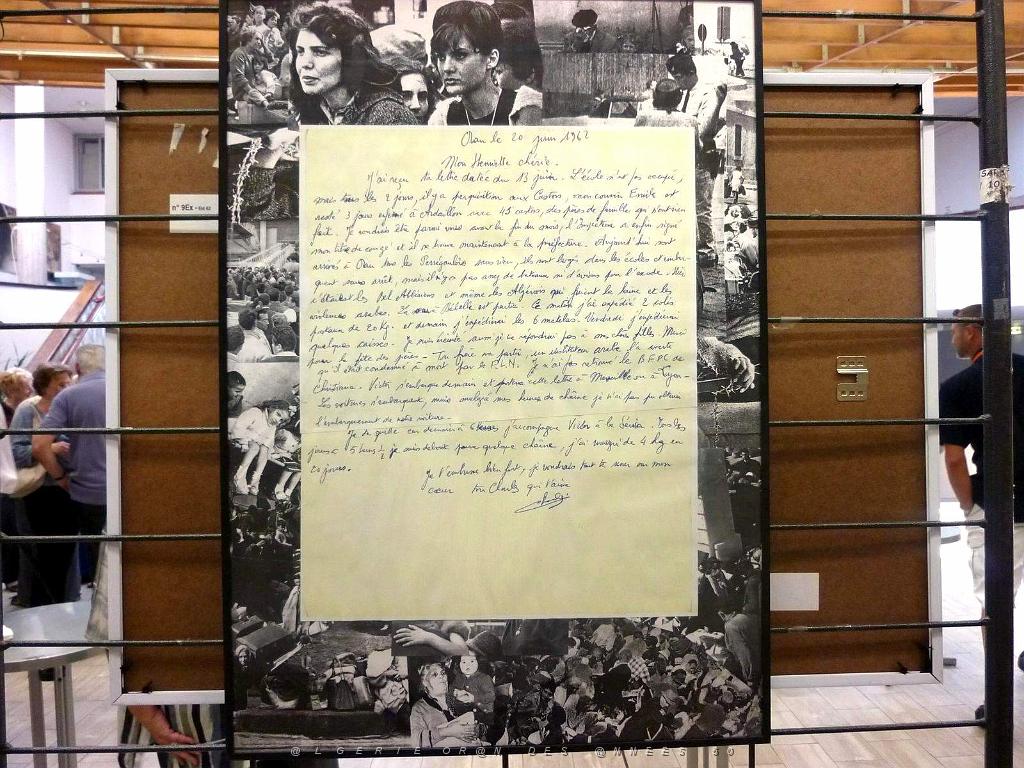 Oran le 20 juin 1962
Mon Henriette chérie.
J'ai reçu ta lettre datée du 13 juin. L'école n'est pas occupée,
mais tous les 2 jours, il y a perquisition aux Castors, mon cousin Emile est
resté 3 jours enfermé à Ardaillon avec 45 castors, des pères de famille qui n'ont rien
fait. Je voudrais être parmi vous avant la fin du mois, l'Inspecteur a enfin signé
mon titre de congé et il se trouve maintenant à la préfecture. Aujourd'hui sont
arrivés à Oran tous les Perrégaulois sans rien, ils sont logés dans les écoles et embar-
quent sans arrêt, mais il n'y a pas assez de bateaux ni d'avions pour l'exode. Hier
c'étaient les Bel Abbésiens et même les Algérois qui fuient la haine et les
violences arabes. La est partie. Ce matin j'ai expédié 2 colis
postaux de 20 kg. et demain j'expédierai les 6 matelas. Vendredi j'expédierai
quelques caisses. Je suis mais je ne répondrai pas à mes chères filles. Merci
pour la fête des pères - Ton frère est parti, un instituteur arabe l'a averti
qu'il était condamné à mort par le F.L.N. Je n'ai pas retrouvé le B.E.P.C de
Christiane. Victor s'embarque demain et postera cette lettre à Marseille ou à Lyon -
Les voitures s'embarquent, mais malgré mes heures de chaîne je n'ai pas pu obtenir
l'embarquement de notre voiture -
Je te quitte car demain à 6 heures j'accompagne Victor à la Sénia. Tous les
jours à 5 heures ½ je suis debout pour quelque chaîne, j'ai maigri de 4 kg en
20 jours.
Je t'embrasse bien fort, je voudrais tant te serrer sur mon
cœur ton Charles qui t'aime
n° 9Ex
SALLE
10
@LGERIE OR@N DES @NNEES 50